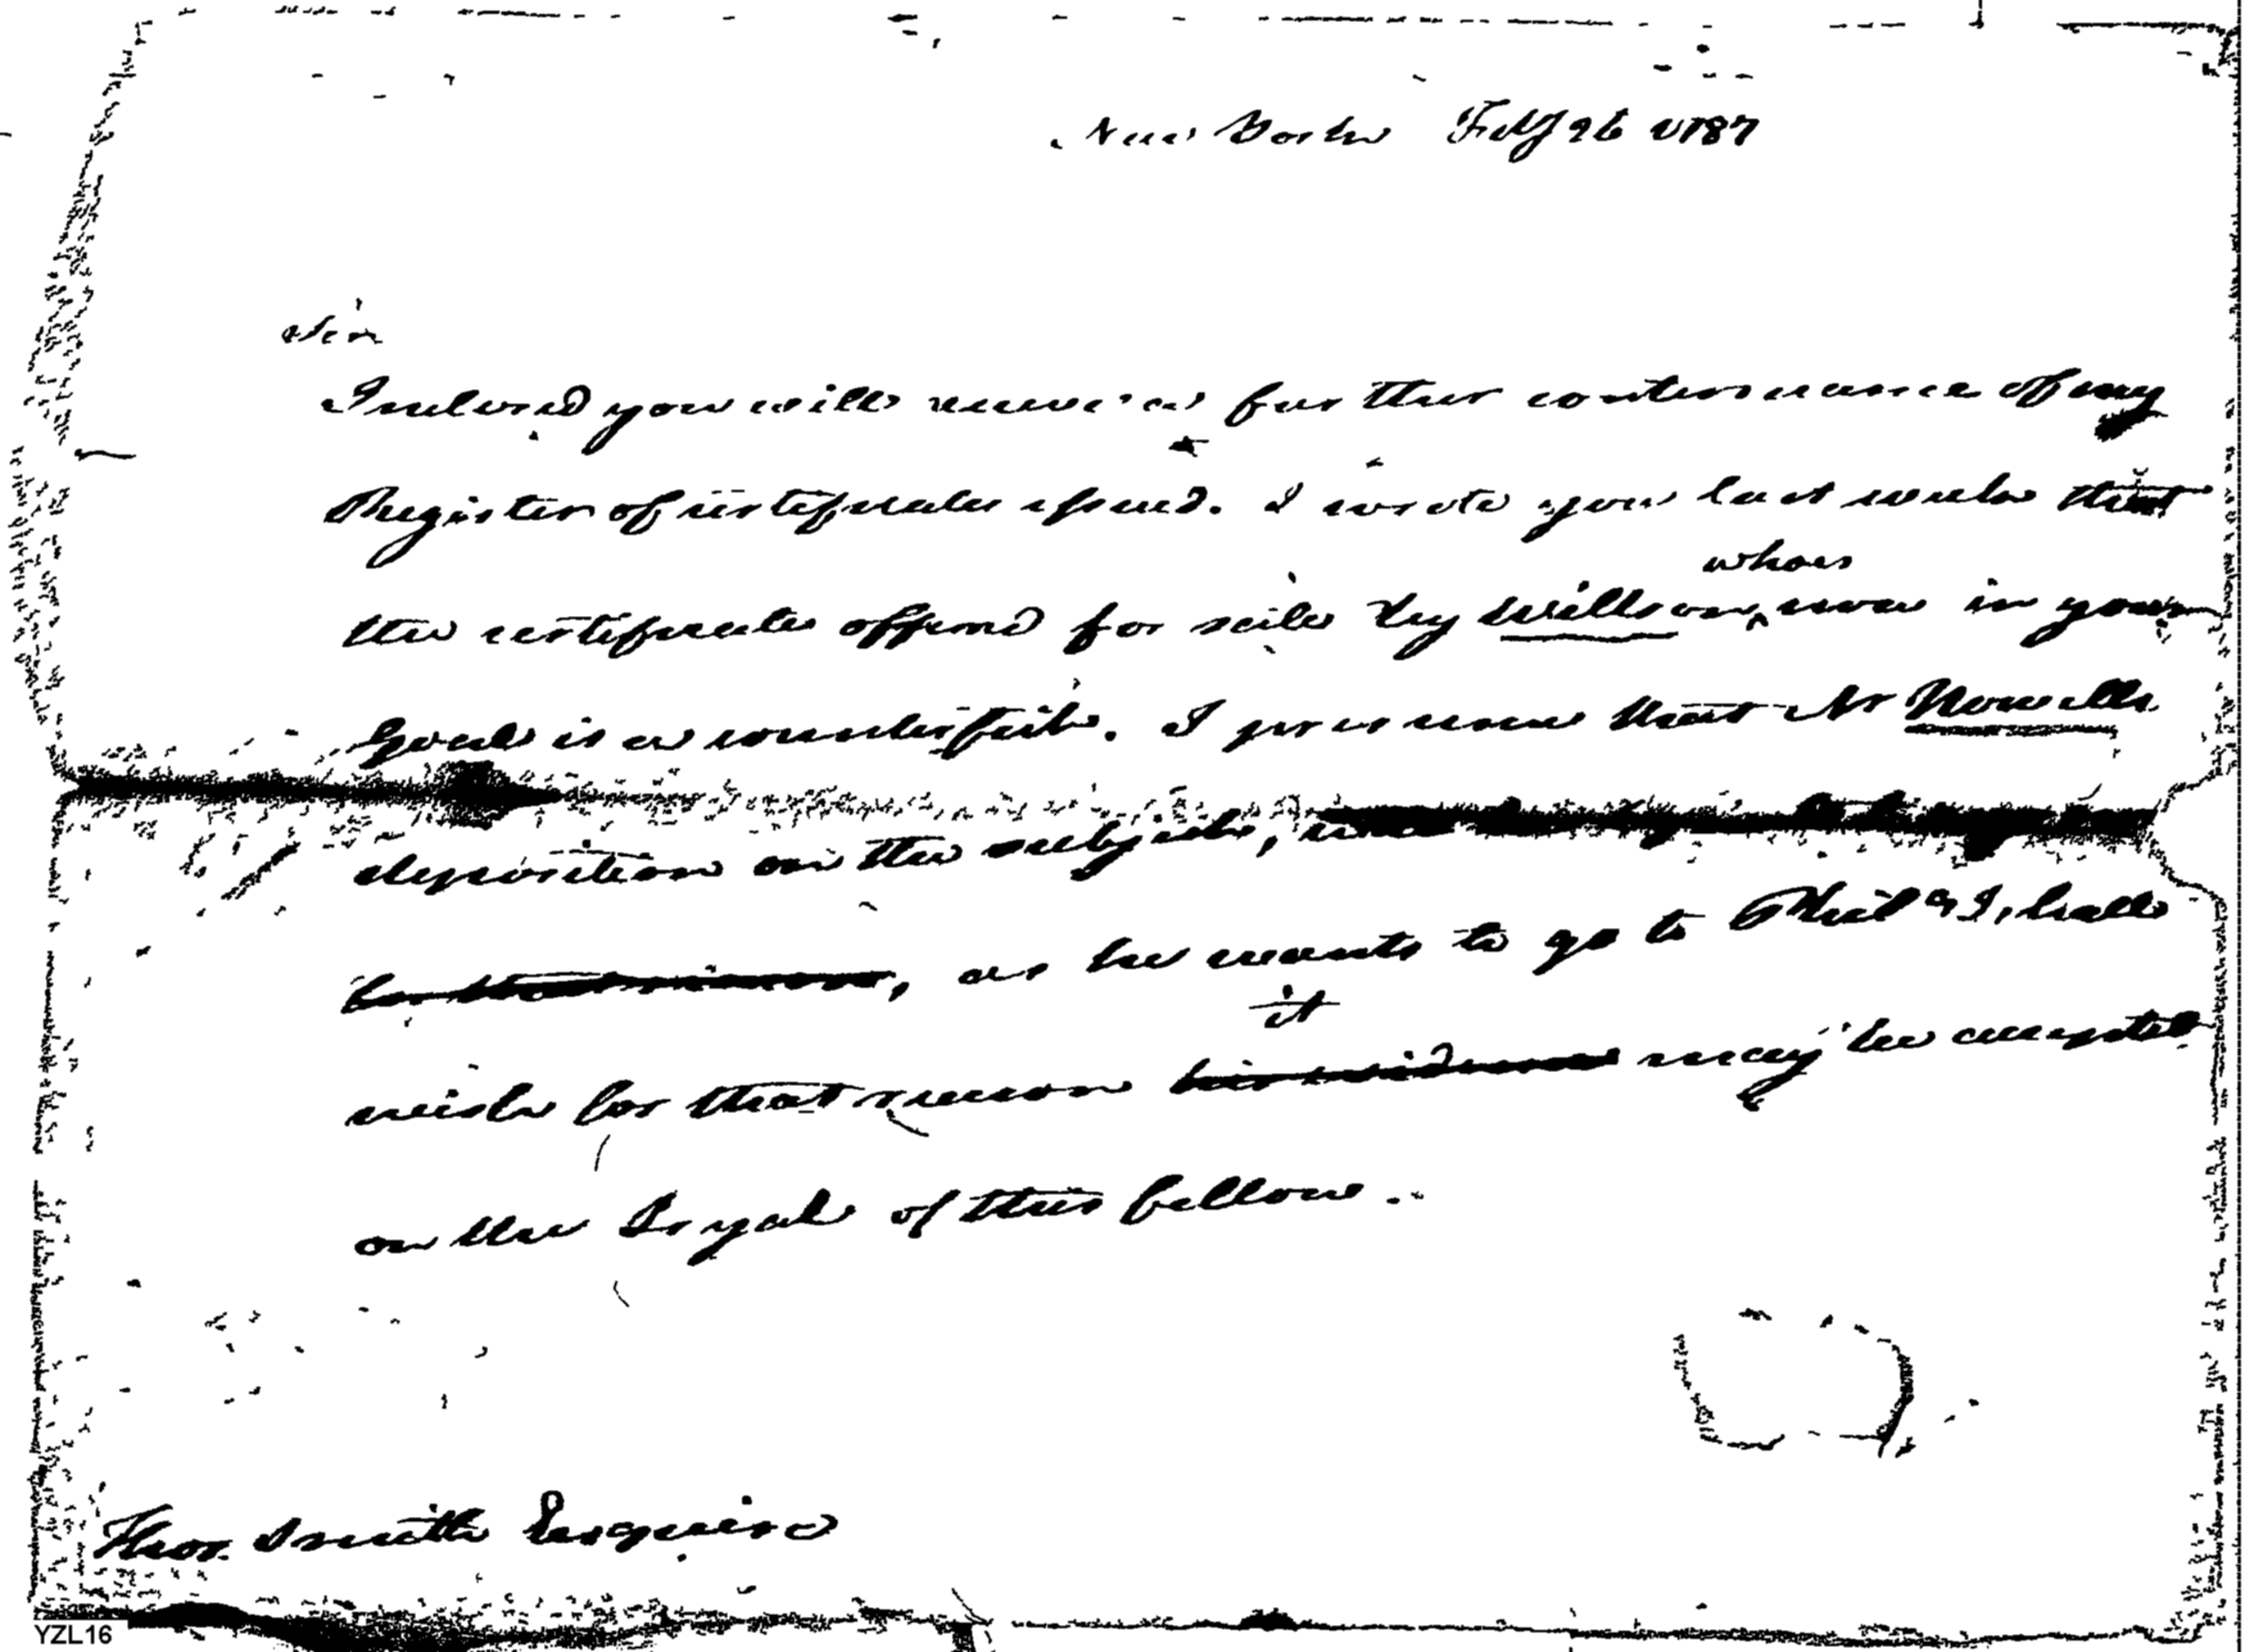 New York Feby 26 1787
Sir
Inclosed you will receive a further continuance of my
Register of certificates issued. I wrote you last week that
whois
the certificate offered for sale by Willson, now in your
Goal is a counterfeit. I presume that Mr Nowells
deposition on the subject,
for that reason, as he wants to go to Phila I, hall
it
wish for that reason his evidence may be accepted
on the Tryal of this fellow.
Thos. Smith Esquire
YZL16